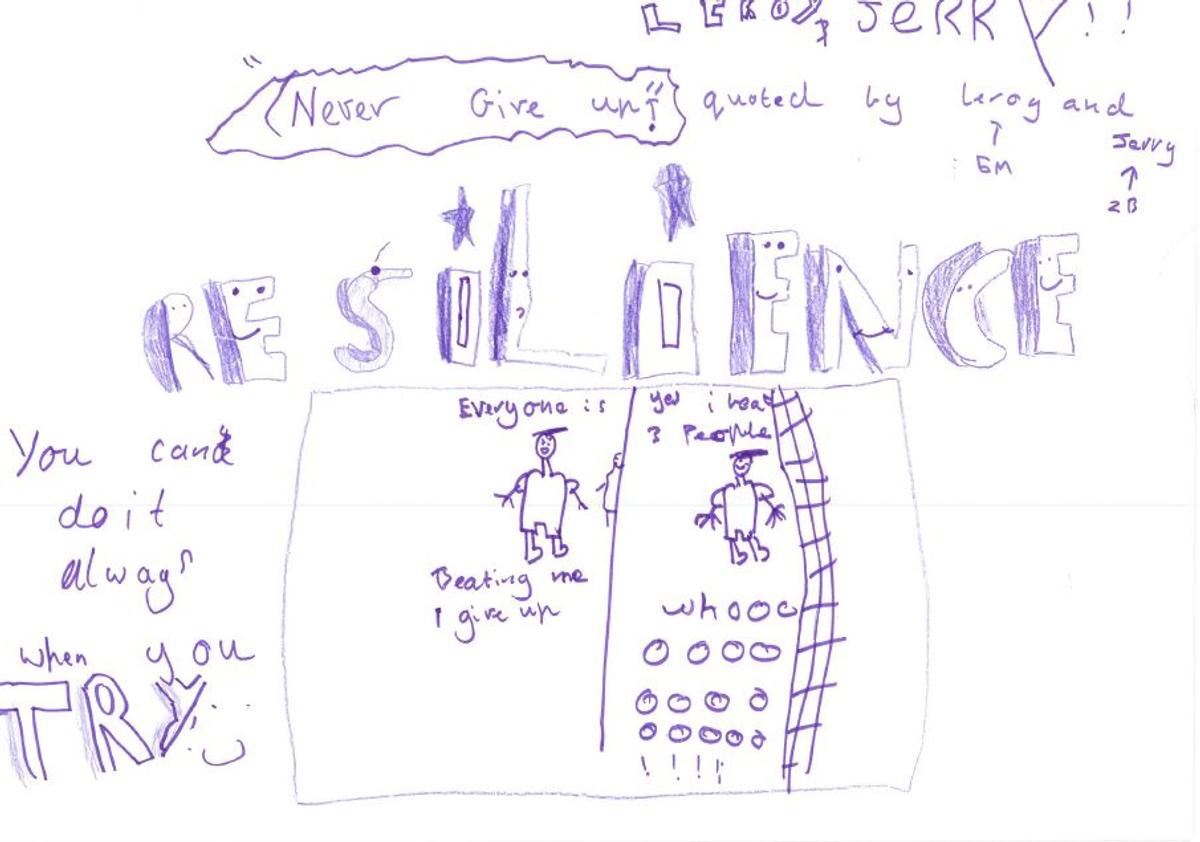 LEROY, JERRY!!
"Never Give up!" quoted by leroy and
Jerry
↑
5M
↑
2B
RESiLiENCE
Everyone is
Beating me
I give up
yes i beat
3 People
whooo
oooo
oooo
ooooo
!!!!
You can
do it
always
when you
TRY